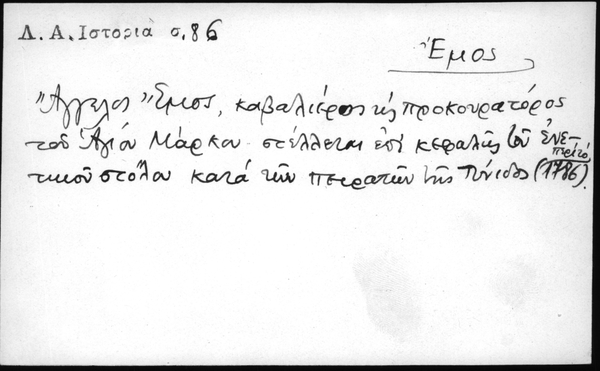 Δ. Α. Ιστορία σ. 86
Ἔμος
Ἄγγελος Ἔμος, καβαλιέρος κὴ προκουρατόρος
τοῦ Ἁγίου Μάρκου στέλλεται ἐπί κεφαλῆς τοῦ ἐνε-
τικοῦ στόλου κατά τῶν πειρατῶν τῆς Τύνιδος (1786).